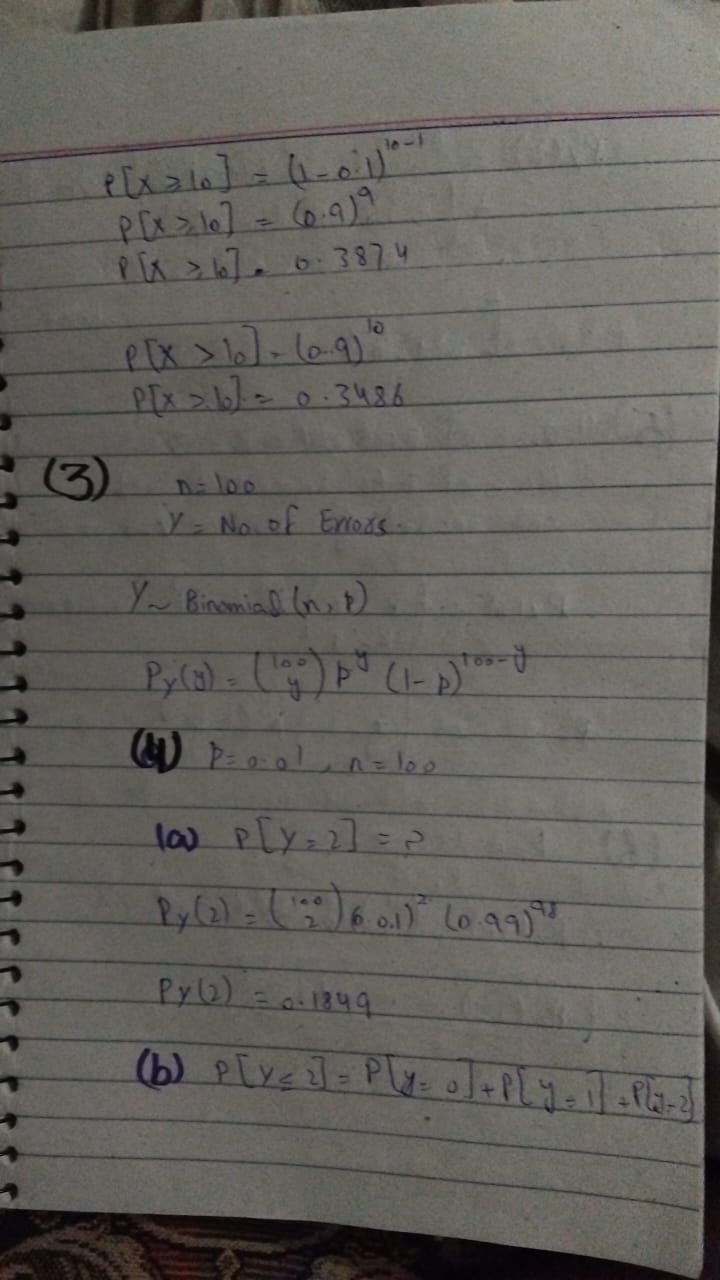 P[X ≥ 10] = (1-0.1)^10-1
P[X ≥ 10] = (0.9)^9
P[X ≥ 10] = 0.3874
P[X > 10] = (0.9)^10
P[X > 10] = 0.3486
(3) n=100
Y = No. of Errors.
Y ~ Binomial (n, p)
P_Y(y) = (100 y) p^y (1-p)^100-y
(4) P=0.01, n=100
(a) P[Y=2] = ?
P_Y(2) = (100 2) (0.01)^2 (0.99)^98
P_Y(2) = 0.1849
(b) P[Y≤2] = P[y=0] + P[y=1] + P[y=2]